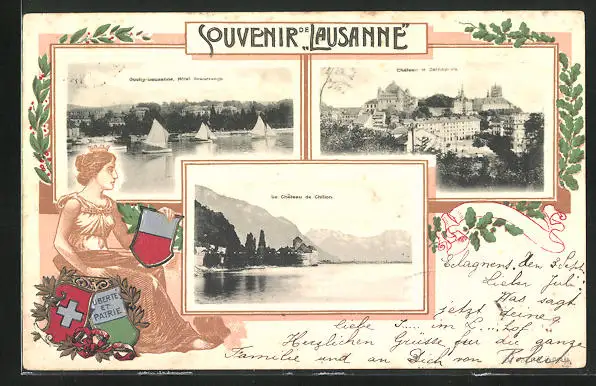 SOUVENIR DE "LAUSANNE"
Ouchy-Lausanne, Hôtel Beaurivage
Château et Cathédrale
Le Château de Chillon
LIBERTÉ
ET
PATRIE
den 3 Sept
Lieber
Was sagt
jetzt deine
liebe J.... im L...hof
Herzlichen Grüsse für die ganze
Familie und an Dich von